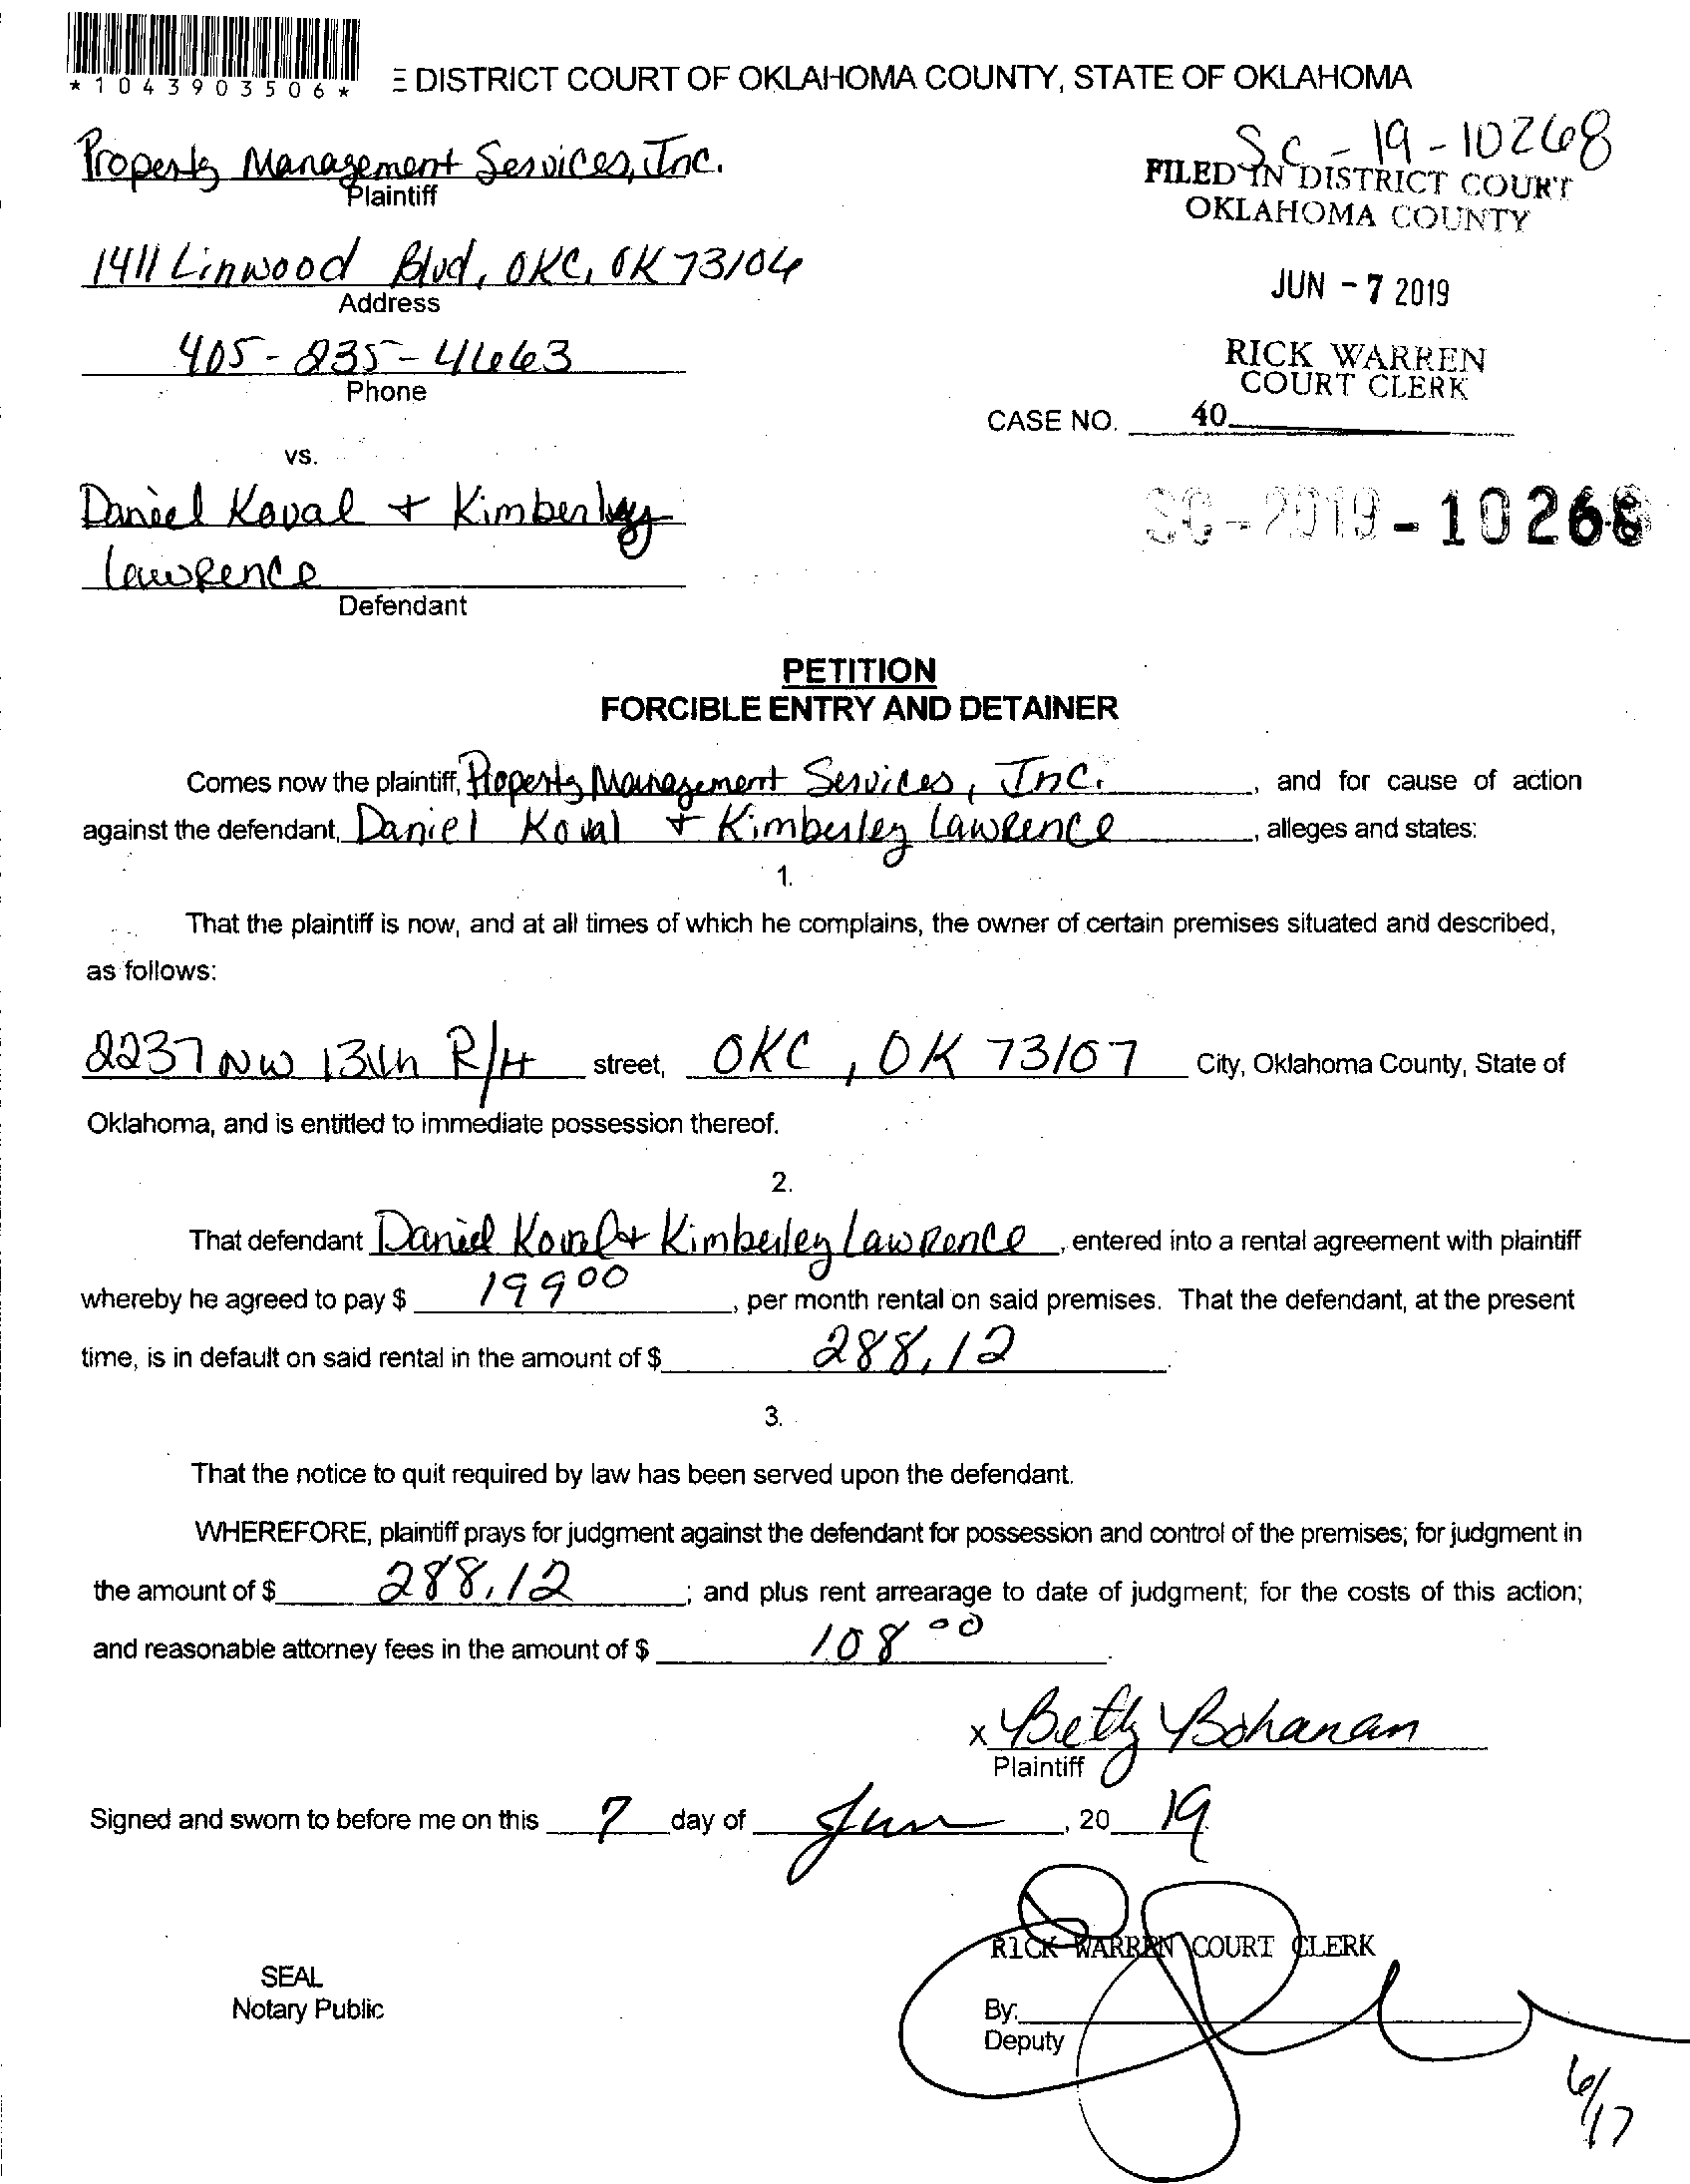 *1043903506*
E DISTRICT COURT OF OKLAHOMA COUNTY, STATE OF OKLAHOMA
SC-19-10268
Property Management Services, Inc.
Plaintiff
FILED IN DISTRICT COURT
OKLAHOMA COUNTY
1411 Linwood Blvd, OKC, OK 73104
Address
JUN - 7 2019
405-235-4663
Phone
RICK WARREN
COURT CLERK
CASE NO. 40
vs.
Daniel Koval + Kimberley
Lawrence
Defendant
SC-2019-10268
PETITION
FORCIBLE ENTRY AND DETAINER
Comes now the plaintiff, Property Management Services, Inc., and for cause of action
against the defendant, Daniel Koval + Kimberley Lawrence, alleges and states:
1.
That the plaintiff is now, and at all times of which he complains, the owner of certain premises situated and described,
as follows:
2237 NW 13th R/H street, OKC, OK 73107 City, Oklahoma County, State of
Oklahoma, and is entitled to immediate possession thereof.
2.
That defendant Daniel Koval + Kimberley Lawrence, entered into a rental agreement with plaintiff
whereby he agreed to pay $ 199 00, per month rental on said premises. That the defendant, at the present
time, is in default on said rental in the amount of $ 288.12.
3.
That the notice to quit required by law has been served upon the defendant.
WHEREFORE, plaintiff prays for judgment against the defendant for possession and control of the premises; for judgment in
the amount of $ 288.12; and plus rent arrearage to date of judgment; for the costs of this action;
and reasonable attorney fees in the amount of $ 108 00.
x Betty Bohanan
Plaintiff
Signed and sworn to before me on this 7 day of Jun, 20 19.
RICK WARREN COURT CLERK
SEAL
Notary Public
By:
Deputy
6/17